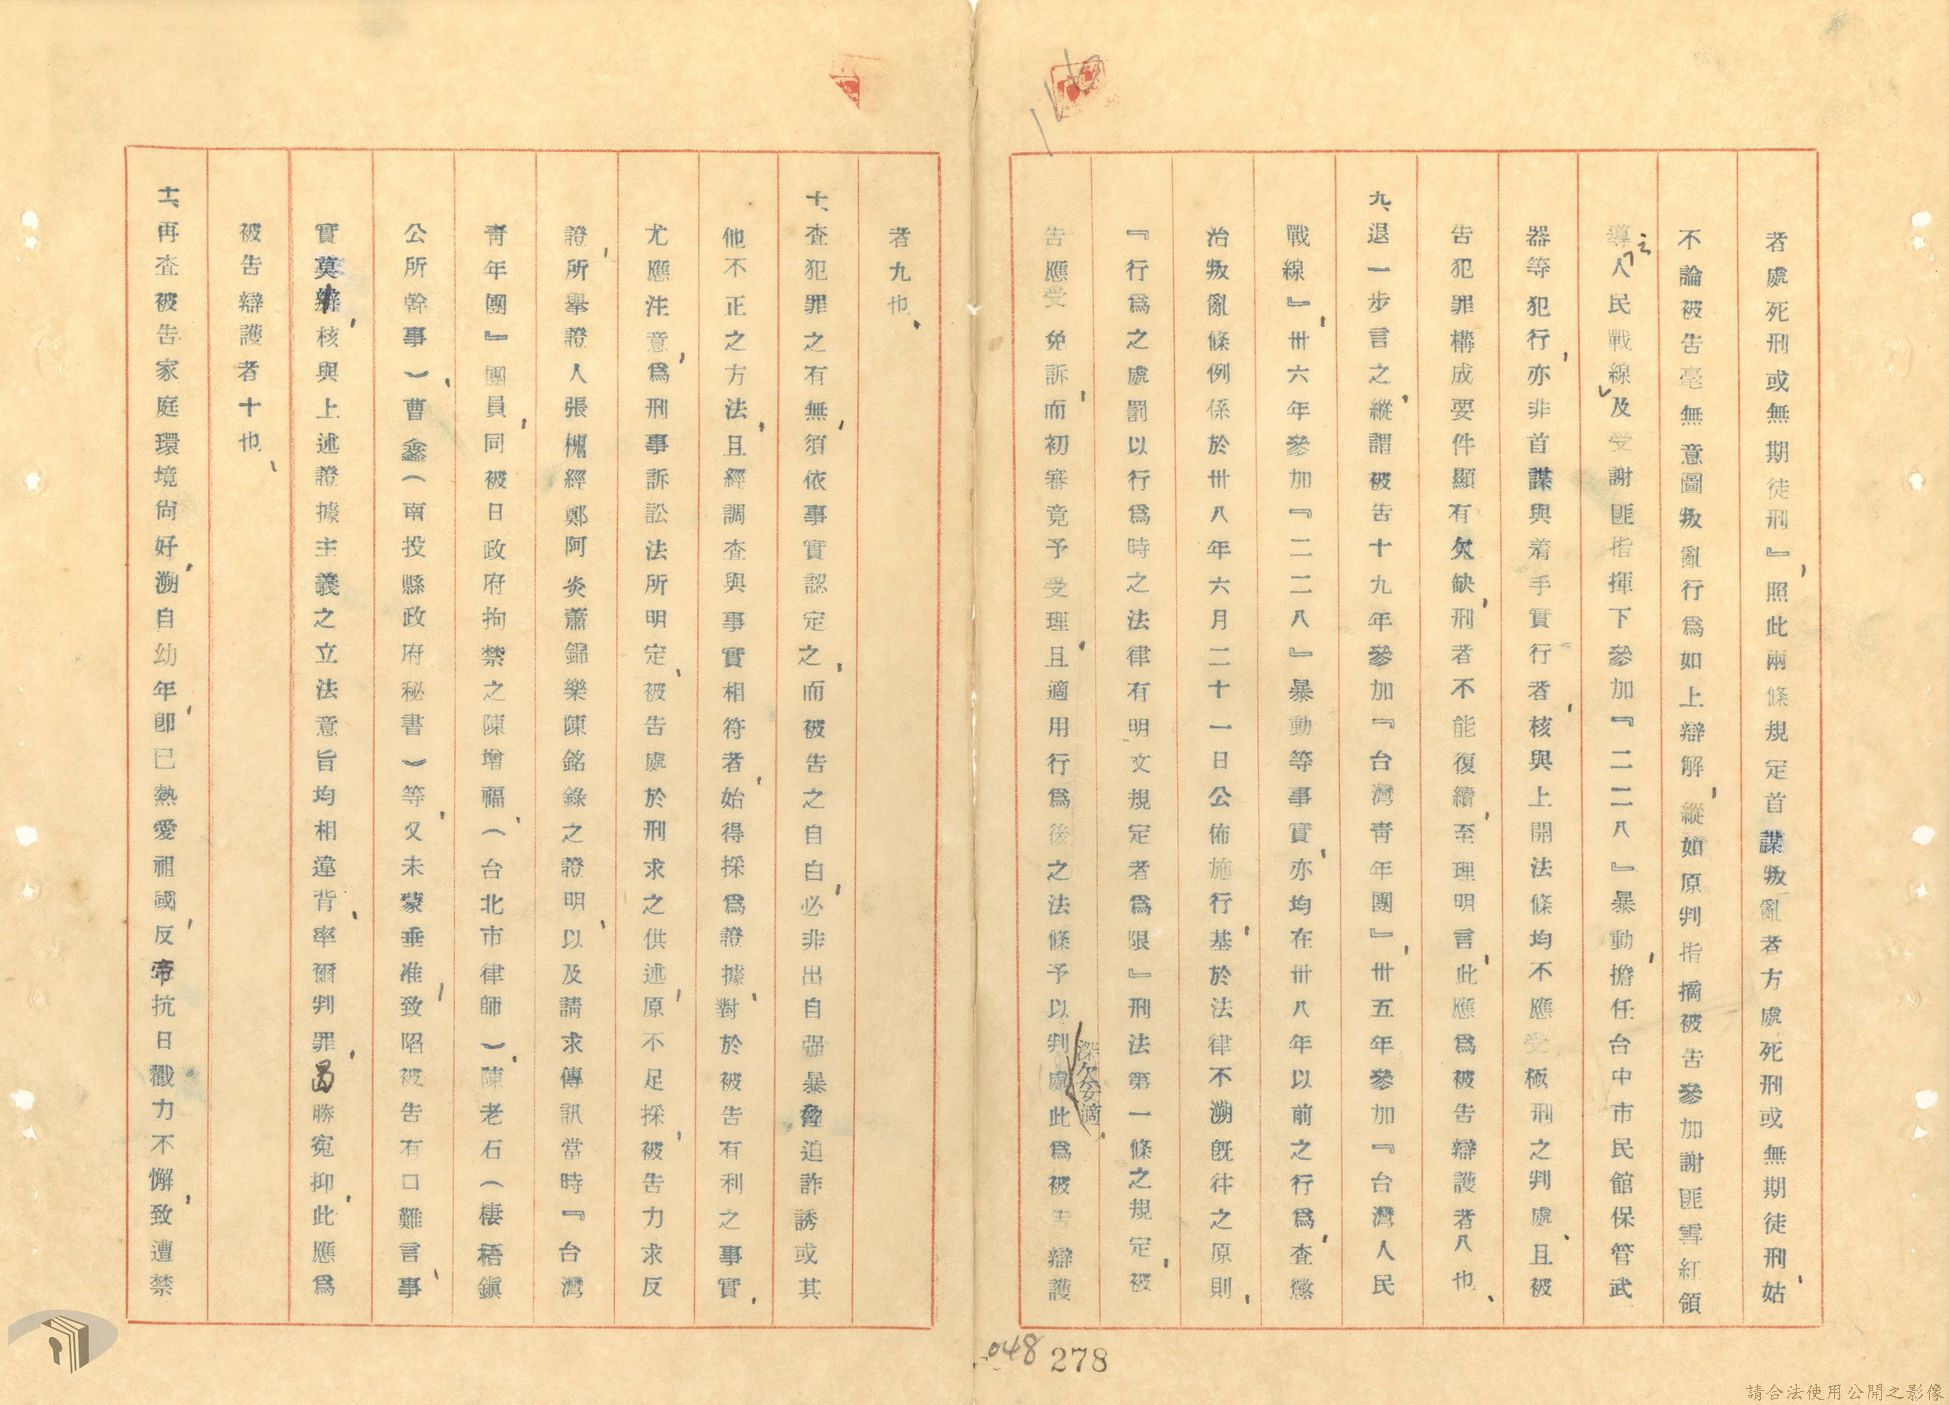 者處死刑或無期徒刑』照此兩條規定首謀叛亂者方處死刑或無期徒刑姑
不論被告毫無意圖叛亂行爲如上辯解，縱如原判指摘被告參加謝匪雪紅領
導之人民戰線及受謝匪指揮下參加『二二八』暴動，擔任台中市民館保管武
器等犯行，亦非首謀與着手實行者，核與上開法條均不應受極刑之判處，且被
告犯罪構成要件顯有欠缺，刑者不能復續，至理明言，此應爲被告辯護者八也、
九、退一步言之，縱謂被告十九年參加『台灣靑年團』，卅五年參加『台灣人民
戰線』，卅六年參加『二二八』暴動等事實，亦均在卅八年以前之行爲，查懲
治叛亂條例係於卅八年六月二十一日公佈施行，基於法律不溯旣往之原則，
『行爲之處罰以行爲時之法律有明文規定者爲限』刑法第一條之規定，被
告應受免訴，而初審竟予受理，且適用行爲後之法條予以判處深欠妥適，此爲被告辯護
者九也、
十、查犯罪之有無，須依事實認定之，而被告之自白，必非出自强暴脅迫詐誘或其
他不正之方法，且經調查與事實相符者，始得採爲證據，對於被告有利之事實，
尤應注意，爲刑事訴訟法所明定，被告處於刑求之供述，原不足採，被告力求反
證，所舉證人張槐經鄭阿炎蕭錦樂陳銘錄之證明，以及請求傳訊當時『台灣
靑年團』團員，同被日政府拘禁之陳增福，（台北市律師），陳老石（棲梧鎭
公所幹事），曹鑫（南投縣政府秘書）等，又未蒙垂准，致陷被告有口難言，事
實莫辯，核與上述證據主義之立法意旨均相違背，率爾判罪，曷勝寃抑，此應爲
被告辯護者十也、
十一、再查被告家庭環境尙好，溯自幼年，卽已熱愛祖國，反帝抗日戮力不懈，致遭禁
048
278
請合法使用公開之影像